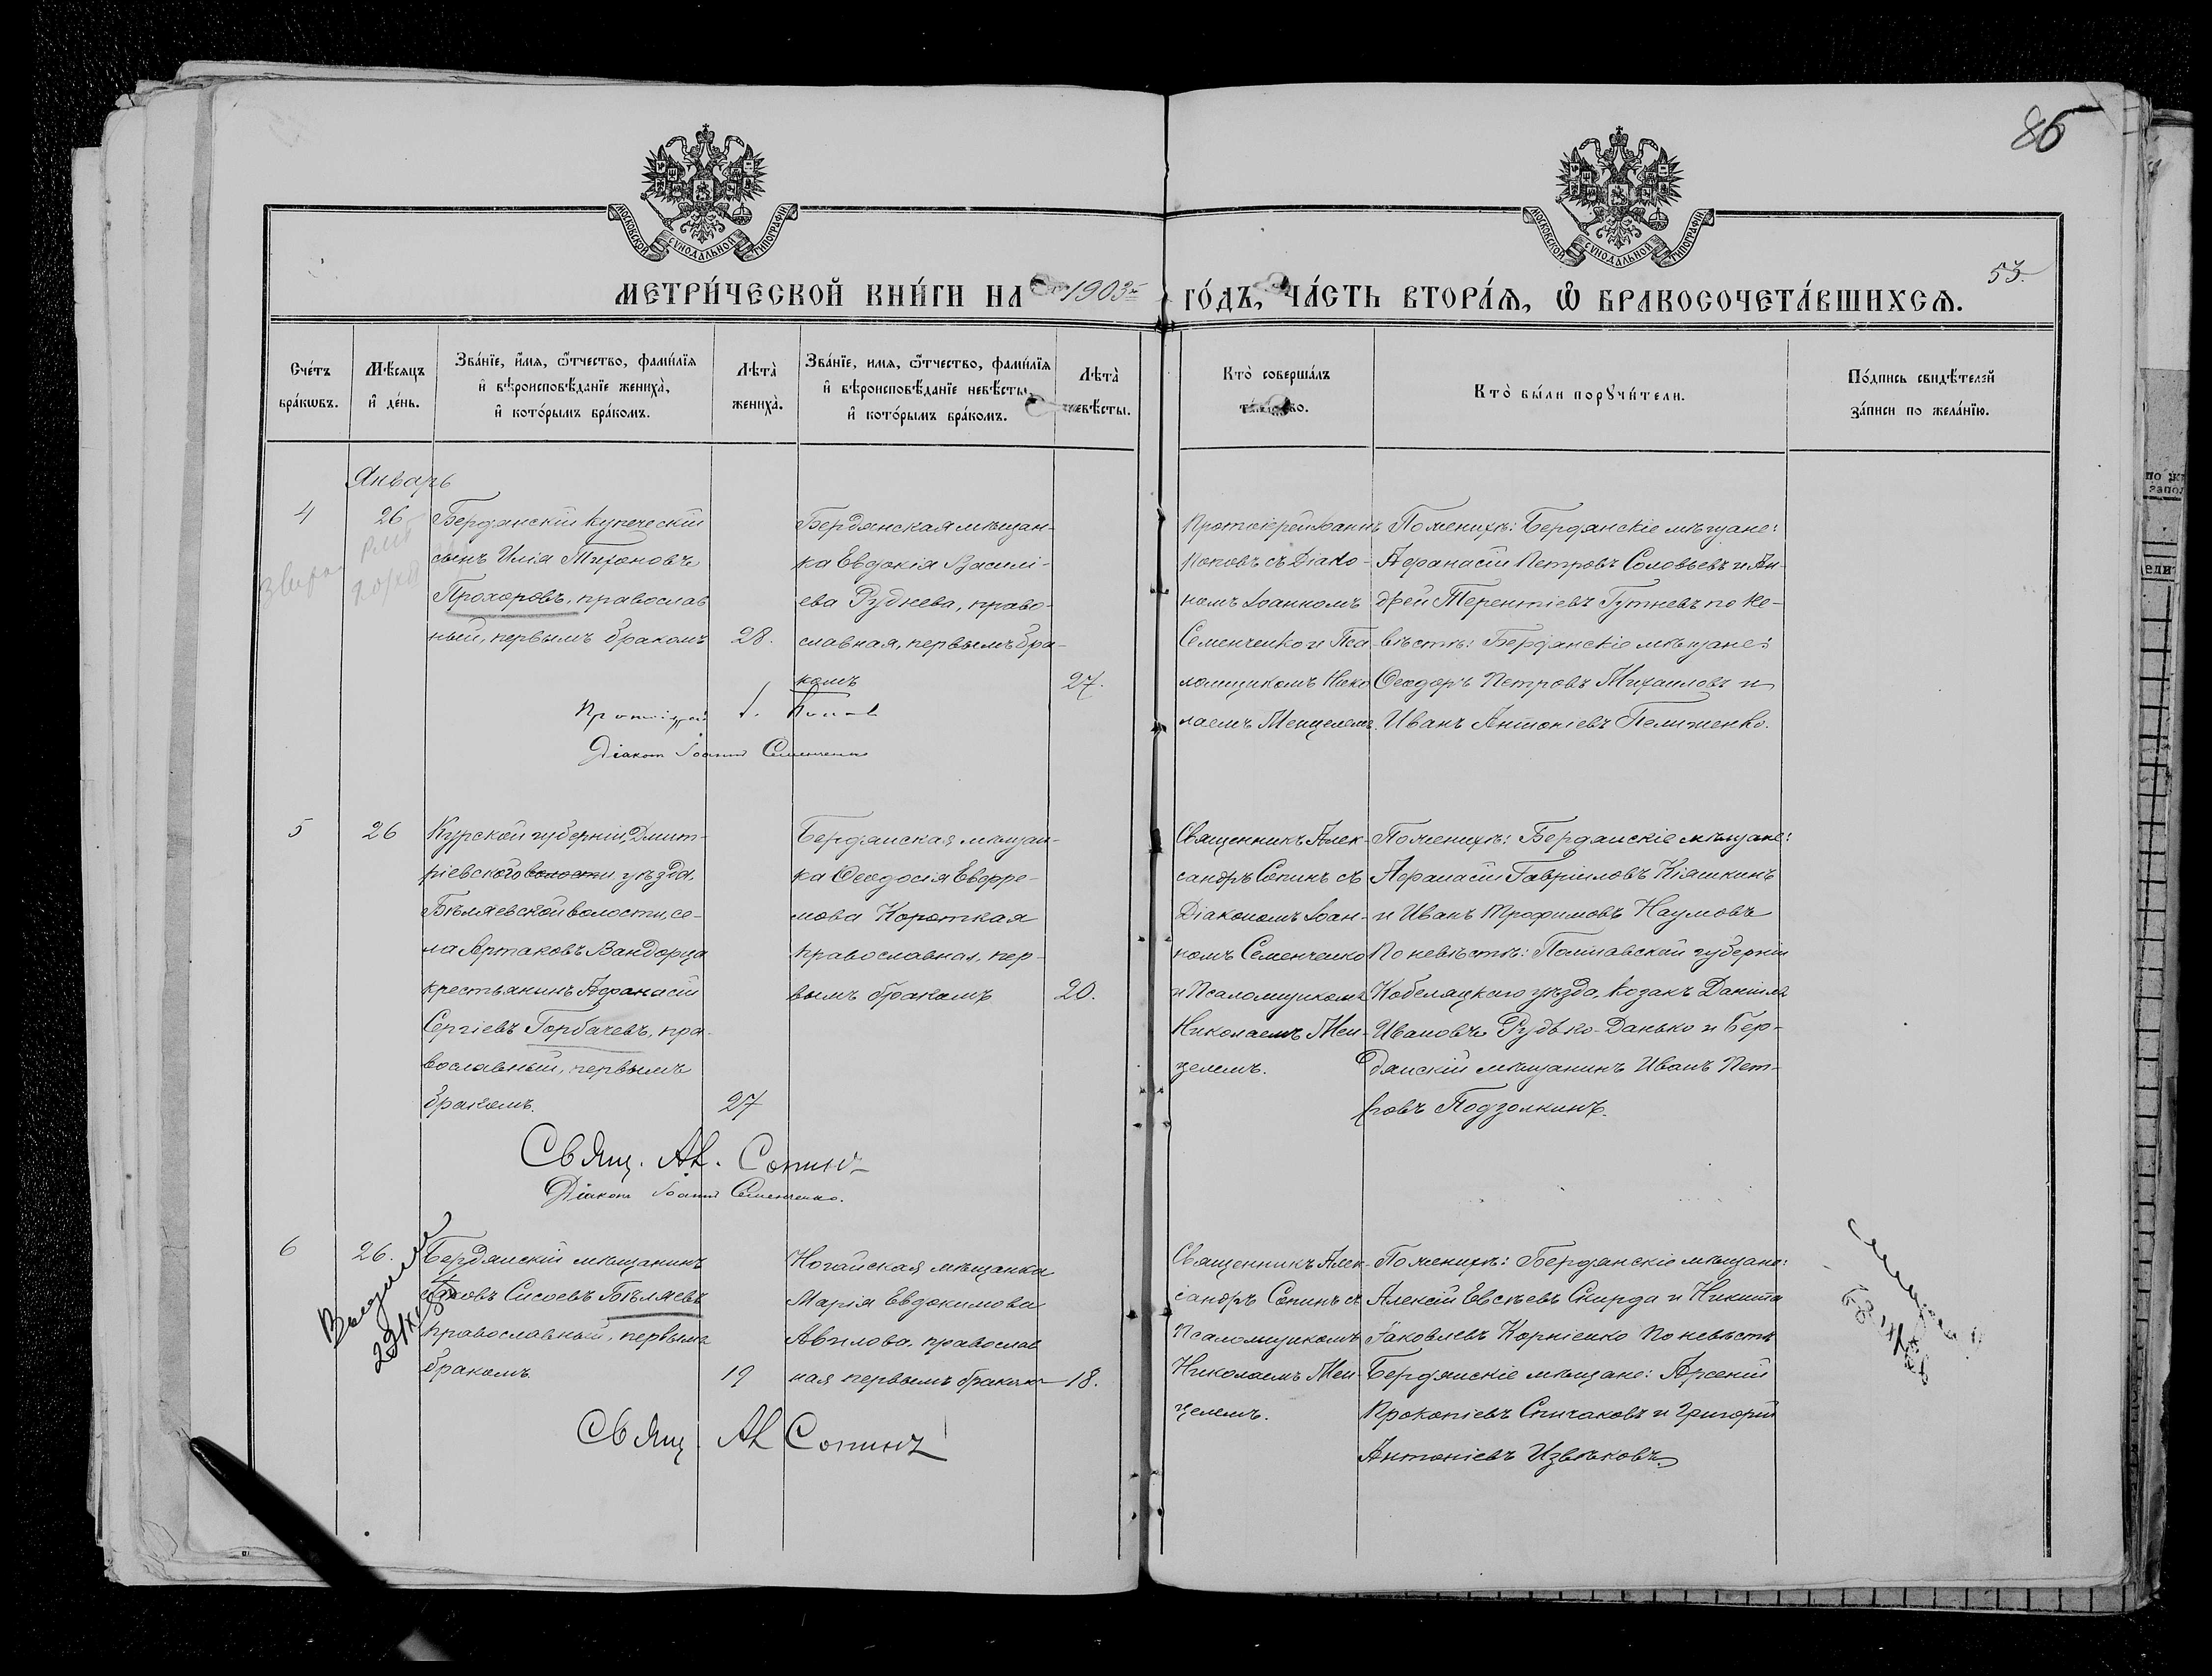 85
МОСКОВСКОЙ СУНОДАЛЬНОЙ ТИПОГРАФІИ
МОСКОВСКОЙ СУНОДАЛЬНОЙ ТИПОГРАФІИ
53.
МЕТРИ́ЧЕСКОЙ КНИ́ГИ НА 1903й ГО́ДЪ, ЧА́СТЬ ВТОРА́Ѧ, Ѡ҆ БРАКОСОЧЕТА́ВШИХСѦ.
Сче́тъ
бра́кѡвъ.
Мѣ́сяцъ
и҆ де́нь.
Зва́нїе, и҆́мѧ, ѻ҆́тчество, фами́лїѧ
и҆ вѣроисповѣ́данїе жениха̀,
и҆ кото́рымъ бра́комъ.
Лѣта̀
жениха̀.
Зва́нїе, имѧ, ѻ҆́тчество, фами́лїѧ
и҆ вѣроисповѣ́данїе невѣ́сты,
и҆ кото́рымъ бра́комъ.
Лѣта̀
невѣ́сты.
Кто̀ соверша́лъ
та́инство.
Кто̀ бы́ли порꙋчи́тели.
По́дпись свидѣ́телей
за́писи по жела́нїю.
Январь
4
26
Бердянскій купеческій
сынъ Илія Тихоновъ
Прохоровъ, православ
ный, первымъ бракомъ
28.
Бердянская мѣщан-
ка Евдокія Василі-
ева Руднева, право-
славная, первымъ бра-
комъ
27.
Протоіерей Іоаннъ
Поповъ съ Діако-
номъ Іоанномъ
Семенченко и Пса
ломщикомъ Нико
лаемъ Менцелемъ.
По женихѣ: Бердянскіе мѣщане:
Афанасій Петровъ Соловьевъ и Ан-
дрей Терентіевъ Гутневъ по не-
вѣстѣ: Бердянскіе мѣщане:
Ѳеодоръ Петровъ Михаиловъ и
Иванъ Антоніевъ Пелиженко.
Протоіерей І. Попов
Діакон Іоанн Семенченко
5
26
Курской губерніи, Дмит-
ріевского волости уѣзда,
Бѣляевской волости, се-
ла Артаковъ Вандарца
крестьянинъ Афанасій
Сергіевъ Горбачевъ, пра-
вославный, первымъ
бракомъ.
27
Бердянская мѣщан-
ка Ѳеодосія Евфре-
мова Короткая
православная, пер-
вымъ бракомъ
20.
Священникъ Алек-
сандръ Сопинъ съ
Діакономъ Іоан-
номъ Семенченко
и Псаломщикомъ
Николаемъ Мен-
целемъ.
По женихѣ: Бердянскіе мѣщане:
Афанасій Гавріиловъ Кіяшкинъ
и Иванъ Трофимовъ Наумовъ
По невѣстѣ: Полтавской губерніи
Кобеляцкаго уѣзда, козакъ Даніилъ
Ивановъ Рудько-Данько и Бер-
дянскій мѣщанинъ Иванъ Пет-
ровъ Подзолкинъ.
Свящ. Ал. Сопинъ
Діакон Іоанн Семенченко.
6
26.
Бердянскій мѣщанинъ
Іаковъ Сисоевъ Бѣляевъ
православный, первымъ
бракомъ.
19
Ногайская мѣщанка
Марія Евдокимова
Авилова, православ
ная первымъ бракомъ
18.
Священникъ Алек-
сандръ Сопинъ съ
Псаломщикомъ
Николаемъ Мен-
целемъ.
По женихѣ: Бердянскіе мѣщане:
Алексій Евсѣевъ Скирда и Никита
Іаковлевъ Корніенко По невѣстѣ
Бердянскіе мѣщане: Арсеній
Прокопіевъ Спичаковъ и Григорій
Антоніевъ Извѣковъ.
Свящ. Ал Сопинъ